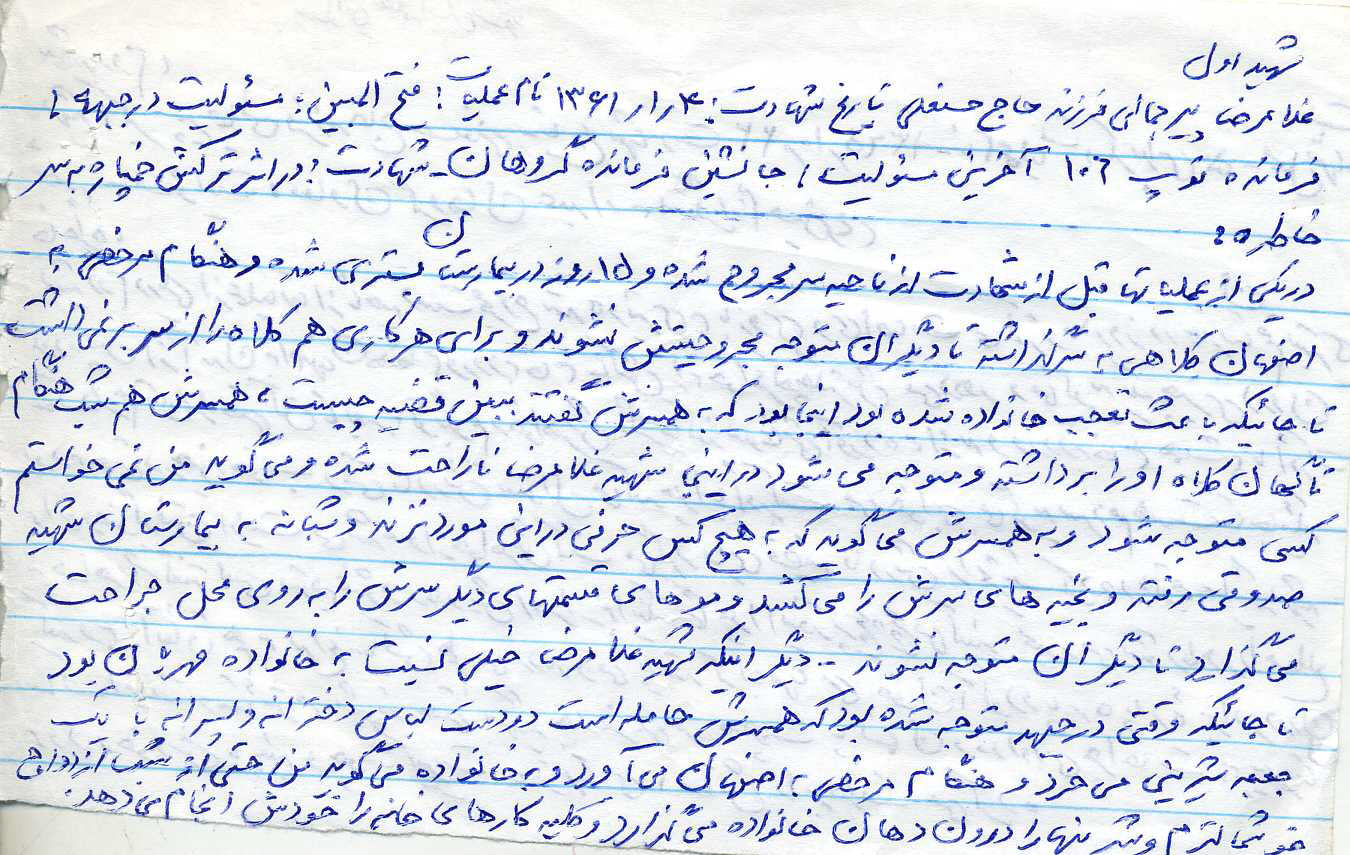 شهید اول
غلامرضا پیرجمالی فرزند حاج حسنعلی تاریخ شهادت: ۴ر۱ر۱۳۶۱ نام عملیات: فتح المبین: مسئولیت در جبهه:
فرمانده توپ ۱۰۶ آخرین مسئولیت: جانشین فرمانده گروهان - شهادت: در اثر ترکش خمپاره به سر
خاطره:
در یکی از عملیاتها قبل از شهادت از ناحیه سر مجروح شده و ۱۵ روز در بیمارستان بستری شده و هنگام مرخصی به
اصفهان کلاهی به سر گذاشته تا دیگران متوجه مجروحیتش نشوند و برای هر کاری هم کلاه را از سر برنمی داشت
تا جائیکه باعث تعجب خانواده شده بود اینجا بود که به همسرش گفتند ببین قضیه چیست، همسرش هم شب هنگام
ناگهان کلاه او را برداشته و متوجه می شود در اینجا شهید غلامرضا ناراحت شده و می گوید من نمی خواستم
کسی متوجه شود و به همسرش می گوید که به هیچ کس حرفی در این مورد نزند و شبانه به بیمارستان شهید
صدوقی رفته و بخیه های سرش را می کشد و موهای قسمتهای دیگر سرش را به روی محل جراحت
می گذارد تا دیگران متوجه نشوند .. دیگر اینکه شهید غلامرضا خیلی نسبت به خانواده مهربان بود
تا جائیکه وقتی در جبهه متوجه شده بود که همسرش حامله است دو دست لباس دخترانه و پسرانه با یک
جعبه شیرینی می خرد و هنگام مرخصی به اصفهان می آورد و به خانواده می گوید من حتی از شب ازدواج
خوشحالترم و شیرینها را درون دهان خانواده می گذارد و کلیه کارهای خانه را خودش انجام می دهد.